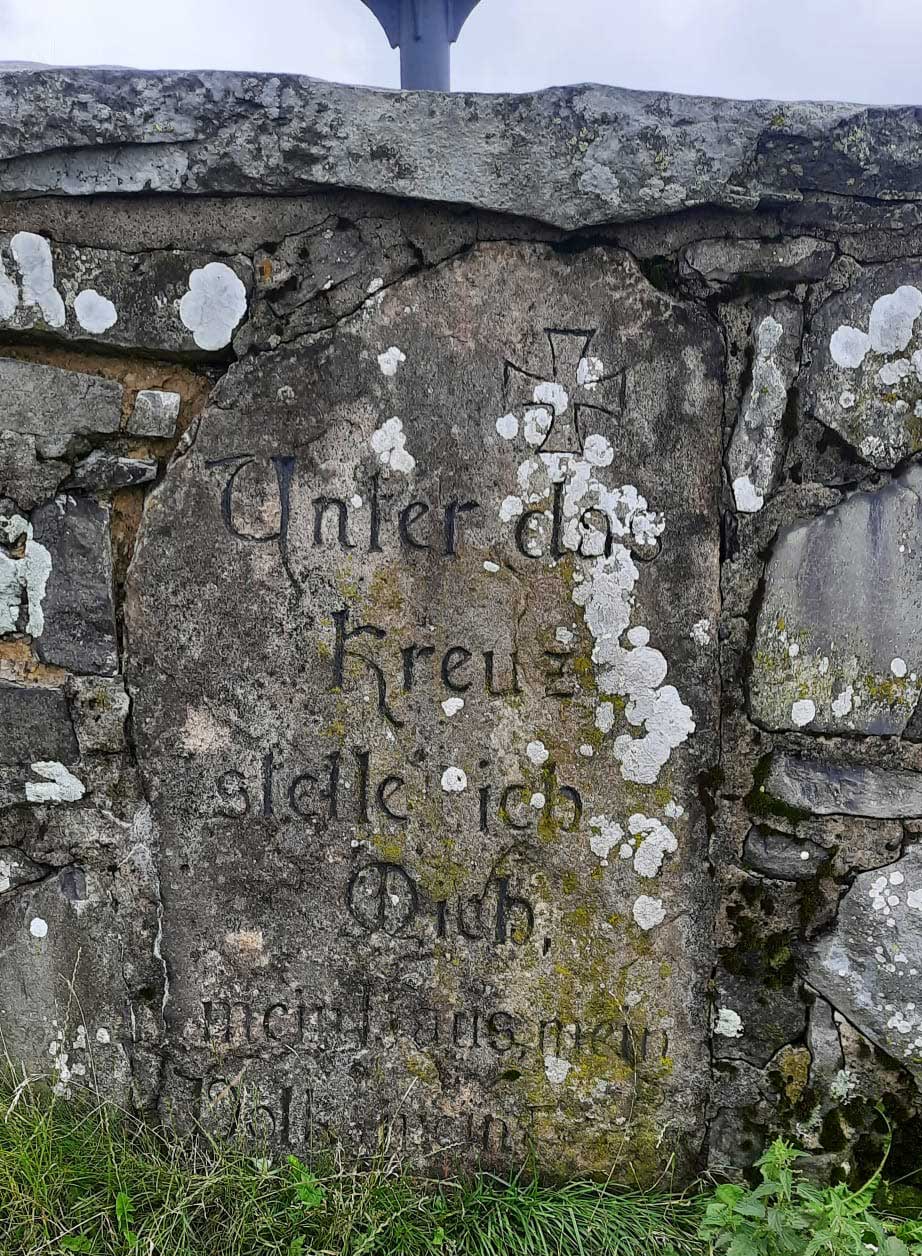 Unter das
Kreuz
stelle ich
Mich,
mein Haus, mein
Volk